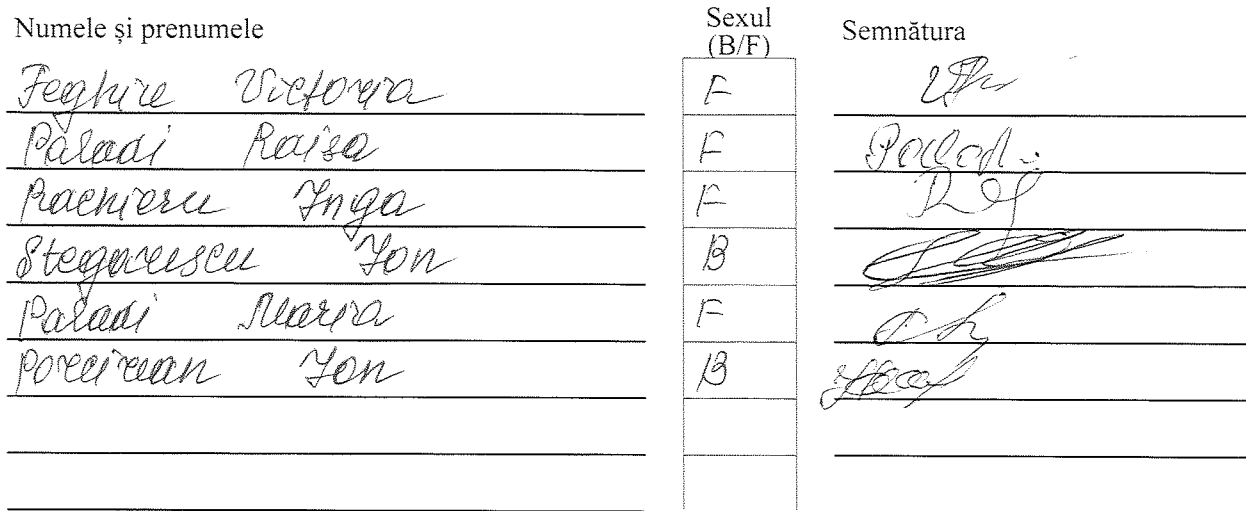 Numele și prenumele Sexul (B/F) Semnătura
Feghiu Victoria F
Paladi Raisa F Palad.
Rachieru Inga F
Stegarescu Ion B
Paladi Maria F
Ion B